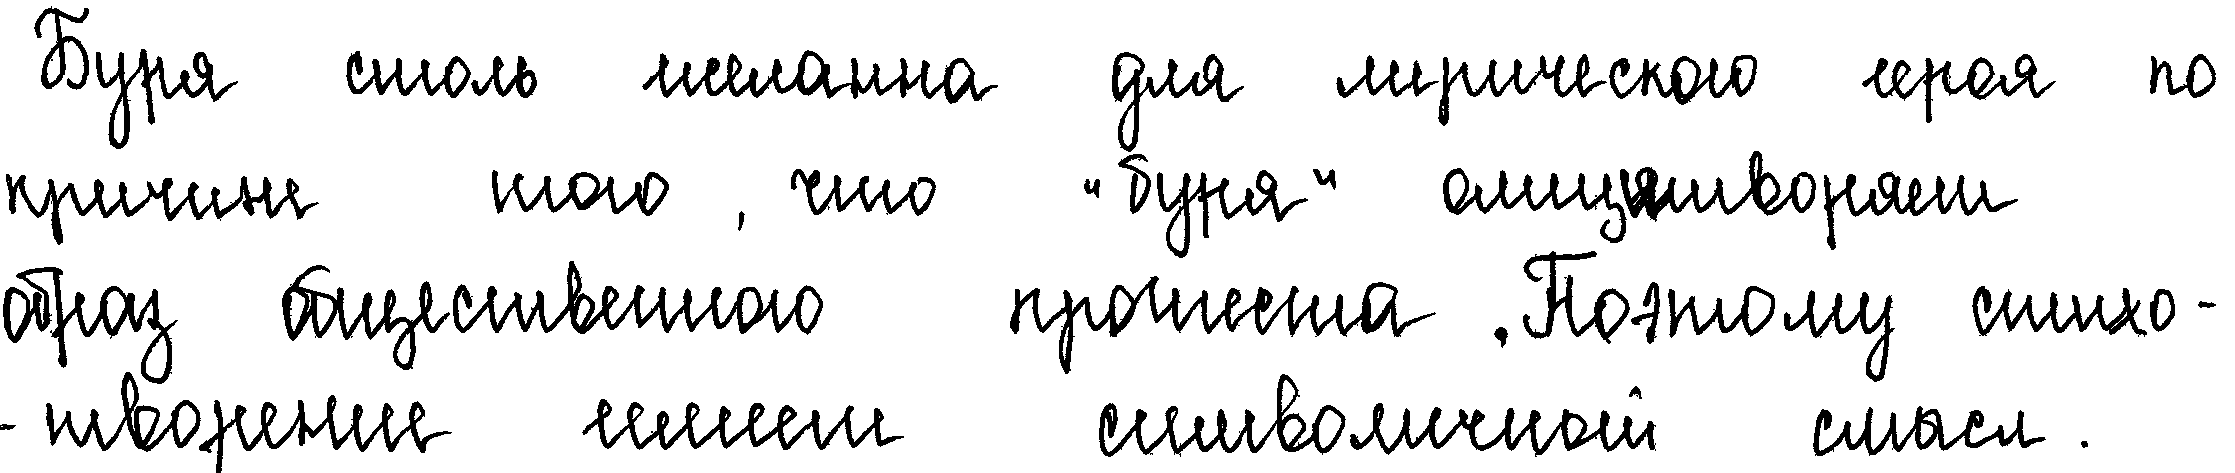 Буря столь желанна для лирического героя по
причине того, что "буря" олицетворяет
образ общественного протеста. Поэтому стихо-
-творение имеет символичный смысл.